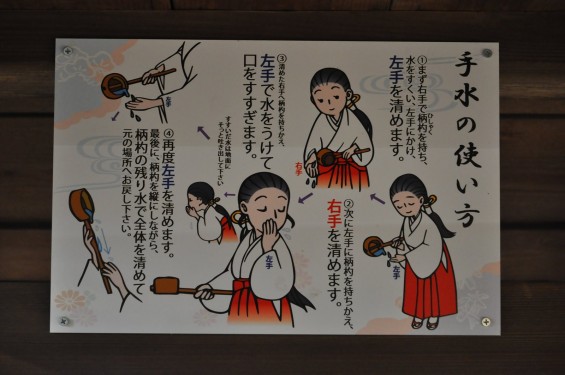 手水の使い方
①まず右手で柄杓を持ち、
ひしゃく
水をすくい、左手にかけ、
左手を清めます。
左手
②次に左手に柄杓を持ちかえ、
右手を清めます。
右手
③清めた右手へ柄杓を持ちかえ、
左手で水をうけて
口をすすぎます。
左手
すすいだ水は地面に
そっと吐き出して下さい
④再度左手を清めます。
最後に、柄杓を縦にしながら、
柄杓の残り水で全体を清めて
元の場所へお戻し下さい。
左手